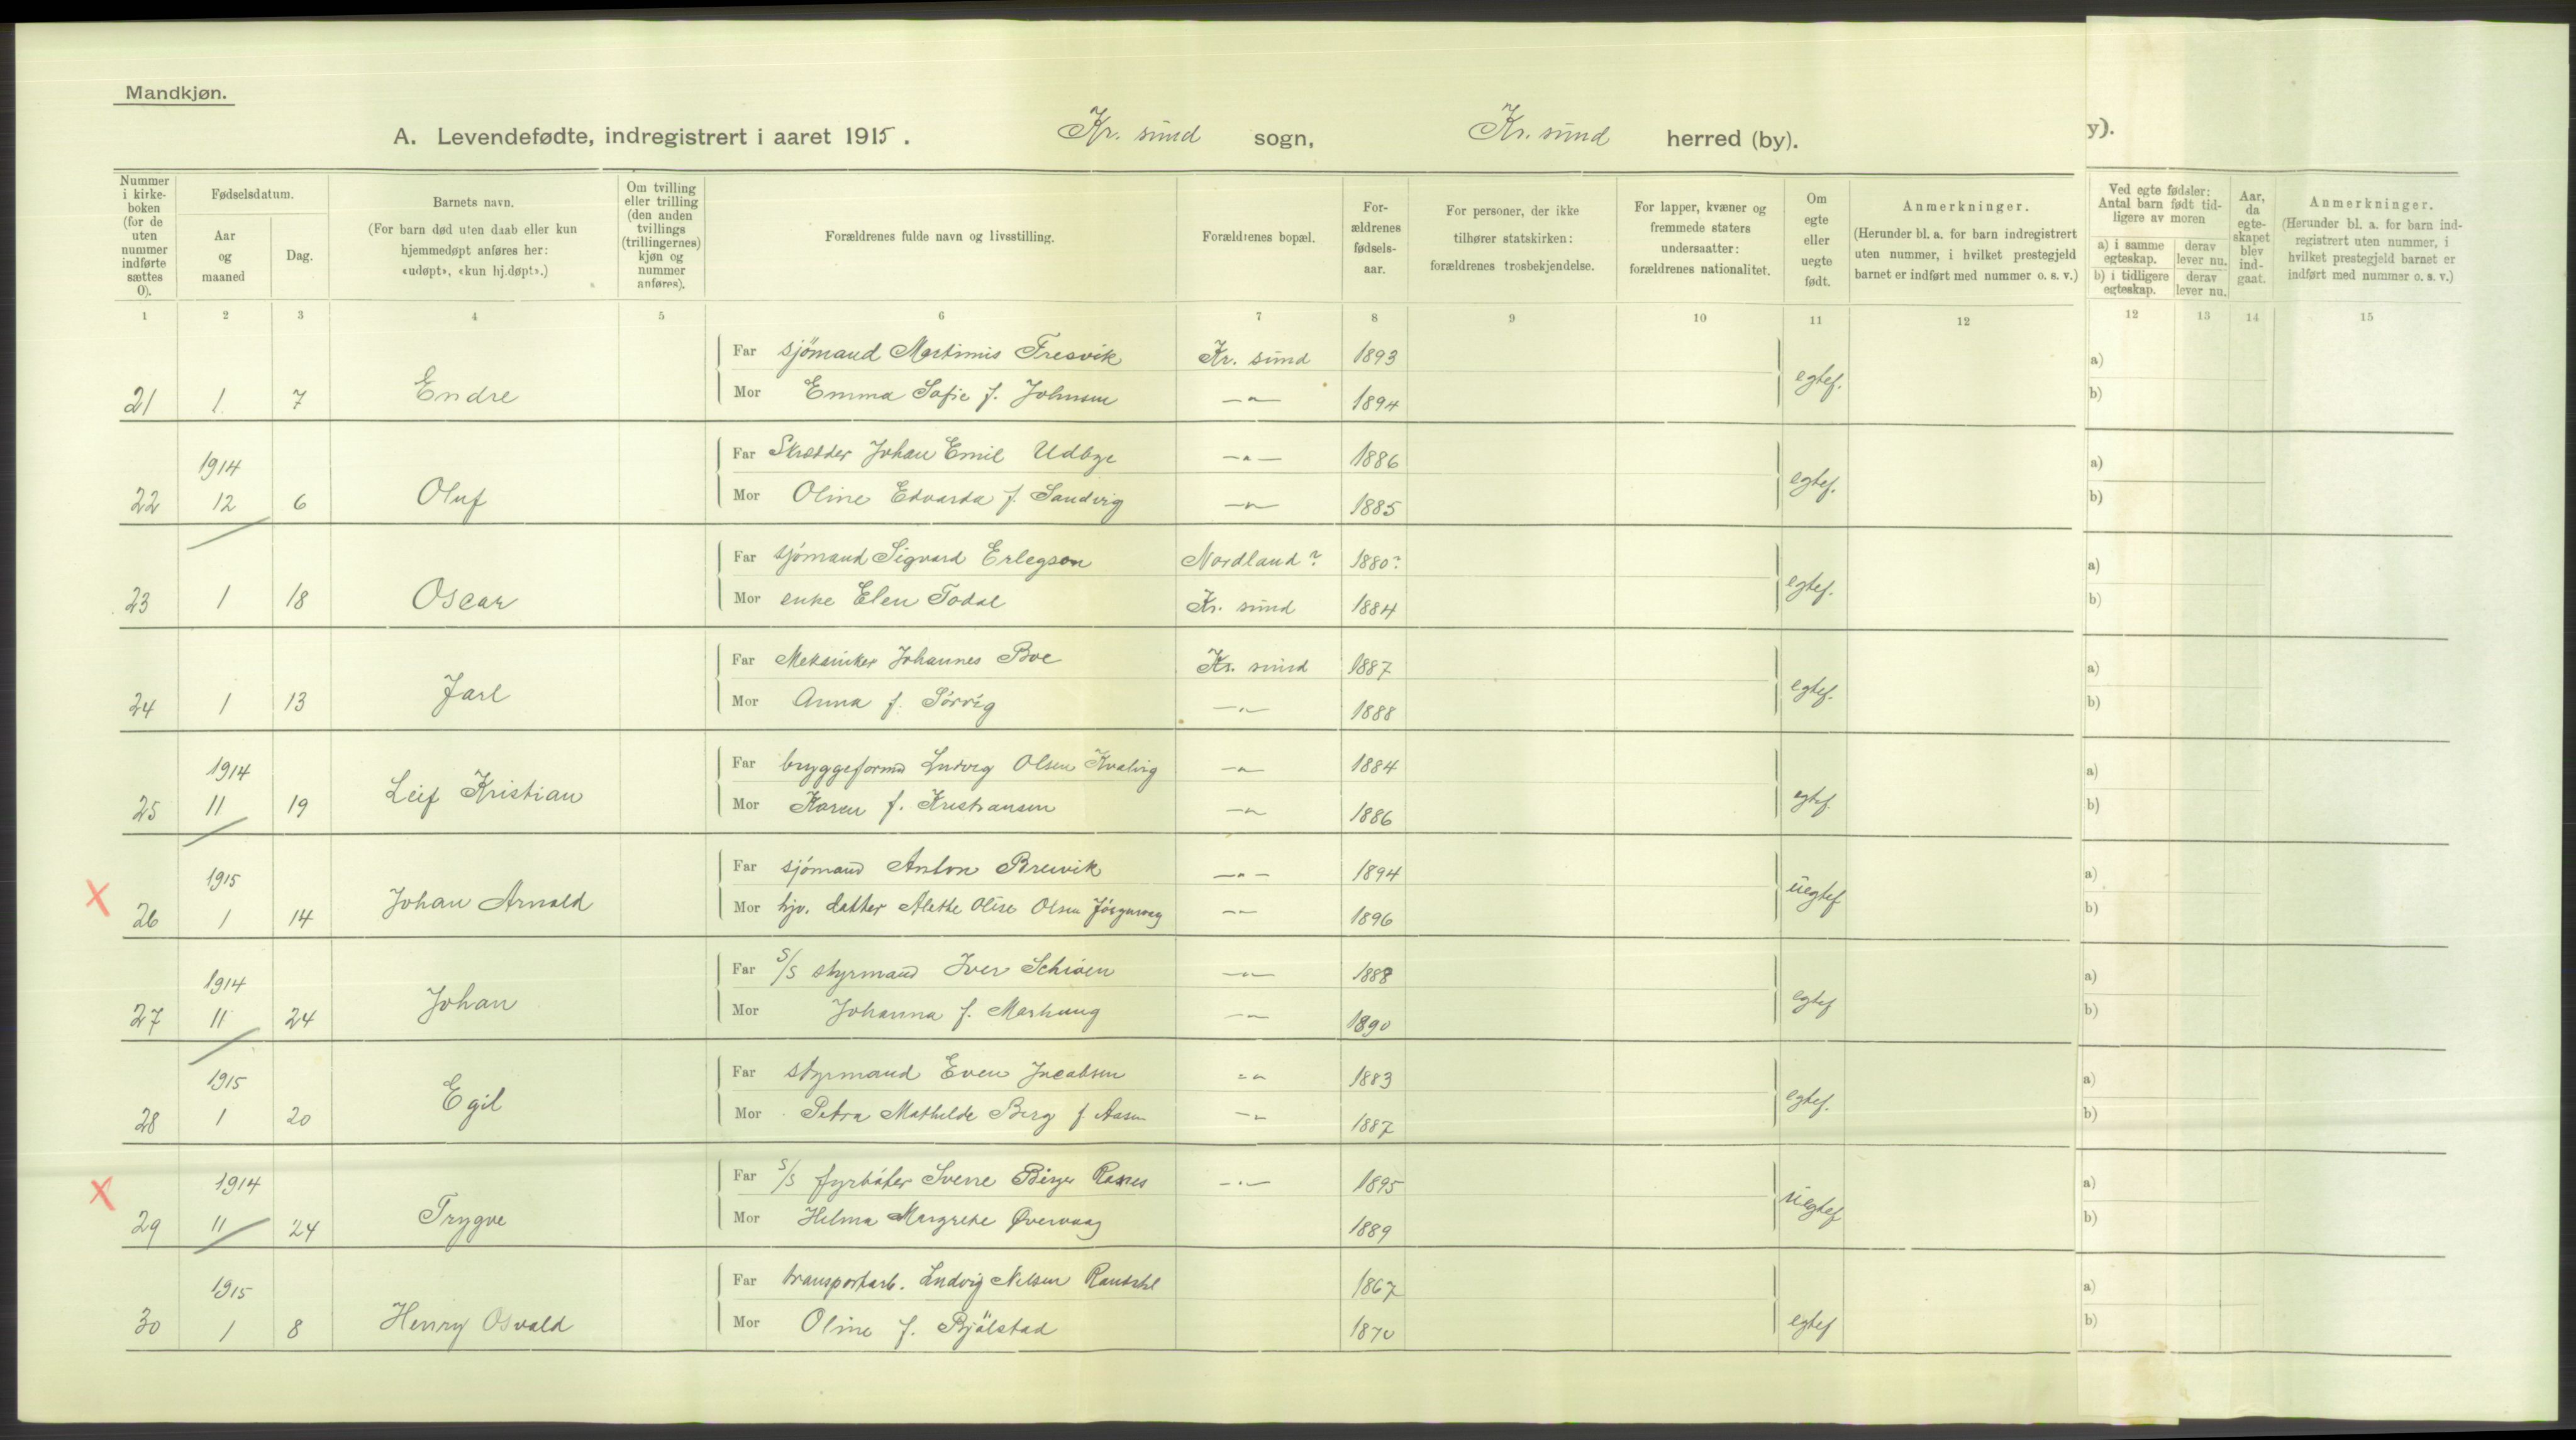 Mandkjøn.
A. Levendefødte, indregistrert i aaret 1915. Kr. sund sogn, Kr. sund herred (by).
y).
Nummer i kirkeboken (for de uten nummer indførte sættes 0).
Fødselsdatum.
Aar og maaned
Dag.
Barnets navn.
(For barn død uten daab eller kun hjemmedøpt anføres her: «udøpt», «kun hj.døpt».)
Om tvilling eller trilling (den anden tvillings (trillingernes) kjøn og nummer anføres).
Forældrenes fulde navn og livsstilling.
Forældrenes bopæl.
Forældrenes fødselsaar.
For personer, der ikke tilhører statskirken: forældrenes trosbekjendelse.
For lapper, kvæner og fremmede staters undersaatter: forældrenes nationalitet.
Om egte eller uegte født.
Anmerkninger.
(Herunder bl. a. for barn indregistrert uten nummer, i hvilket prestegjeld barnet er indført med nummer o. s. v.)
Ved egte fødsler: Antal barn født tidligere av moren
a) i samme egteskap. derav lever nu.
b) i tidligere egteskap. derav lever nu.
Aar, da egteskapet blev indgaat.
Anmerkninger.
(Herunder bl. a. for barn indregistrert uten nummer, i hvilket prestegjeld barnet er indført med nummer o. s. v.)
1 2 3 4 5 6 7 8 9 10 11 12 12 13 14 15
Far sjömand Martinus Fresvik Kr. sund 1893 a)
21 1 7 Endre Mor Emma Sofie f. Johnsen —„— 1894 egtef. b)
1914 Far Skrædder Johan Emil Udbye —„— 1886 a)
22 12 6 Oluf Mor Oline Edvarda f. Sandvig —„— 1885 egtef. b)
Far sjömand Sigvard Erlegson Nordland? 1880? a)
23 1 18 Oscar Mor enke Elen Todal Kr. sund 1884 egtef. b)
Far Mekaniker Johannes Boe Kr. sund 1887 a)
24 1 13 Jarl Mor Anna f. Sörvig —„— 1888 egtef. b)
1914 Far bryggeformd Ludvig Olsen Kvalvig —„— 1884 a)
25 11 19 Leif Kristian Mor Karen f. Kristiansen —„— 1886 egtef. b)
1915 Far sjömand Anton Breivik —„— 1894 a)
X 26 1 14 Johan Arnold Mor hjv. datter Alethe Olise Olsen —„— 1896 uegtef b)
1914 Far S/S styrmand Iver Schiøen —„— 1888 a)
27 11 24 Johan Mor Johanna f. Marhaug —„— 1890 egtef b)
1915 Far styrmand Even Jacobsen —„— 1883 a)
28 1 20 Egil Mor Petra Mathilde Berg f. Aasen —„— 1887 egtef. b)
1914 Far S/S fyrböter Sverre Birger —„— 1895 a)
X 29 11 24 Trygve Mor Helma Margrete Øvervaag 1889 uegtef b)
1915 Far transportarb. Ludvig Nilsen 1867 a)
30 1 8 Henry Osvald Mor Oline f. Bjölstad 1870 egtef b)